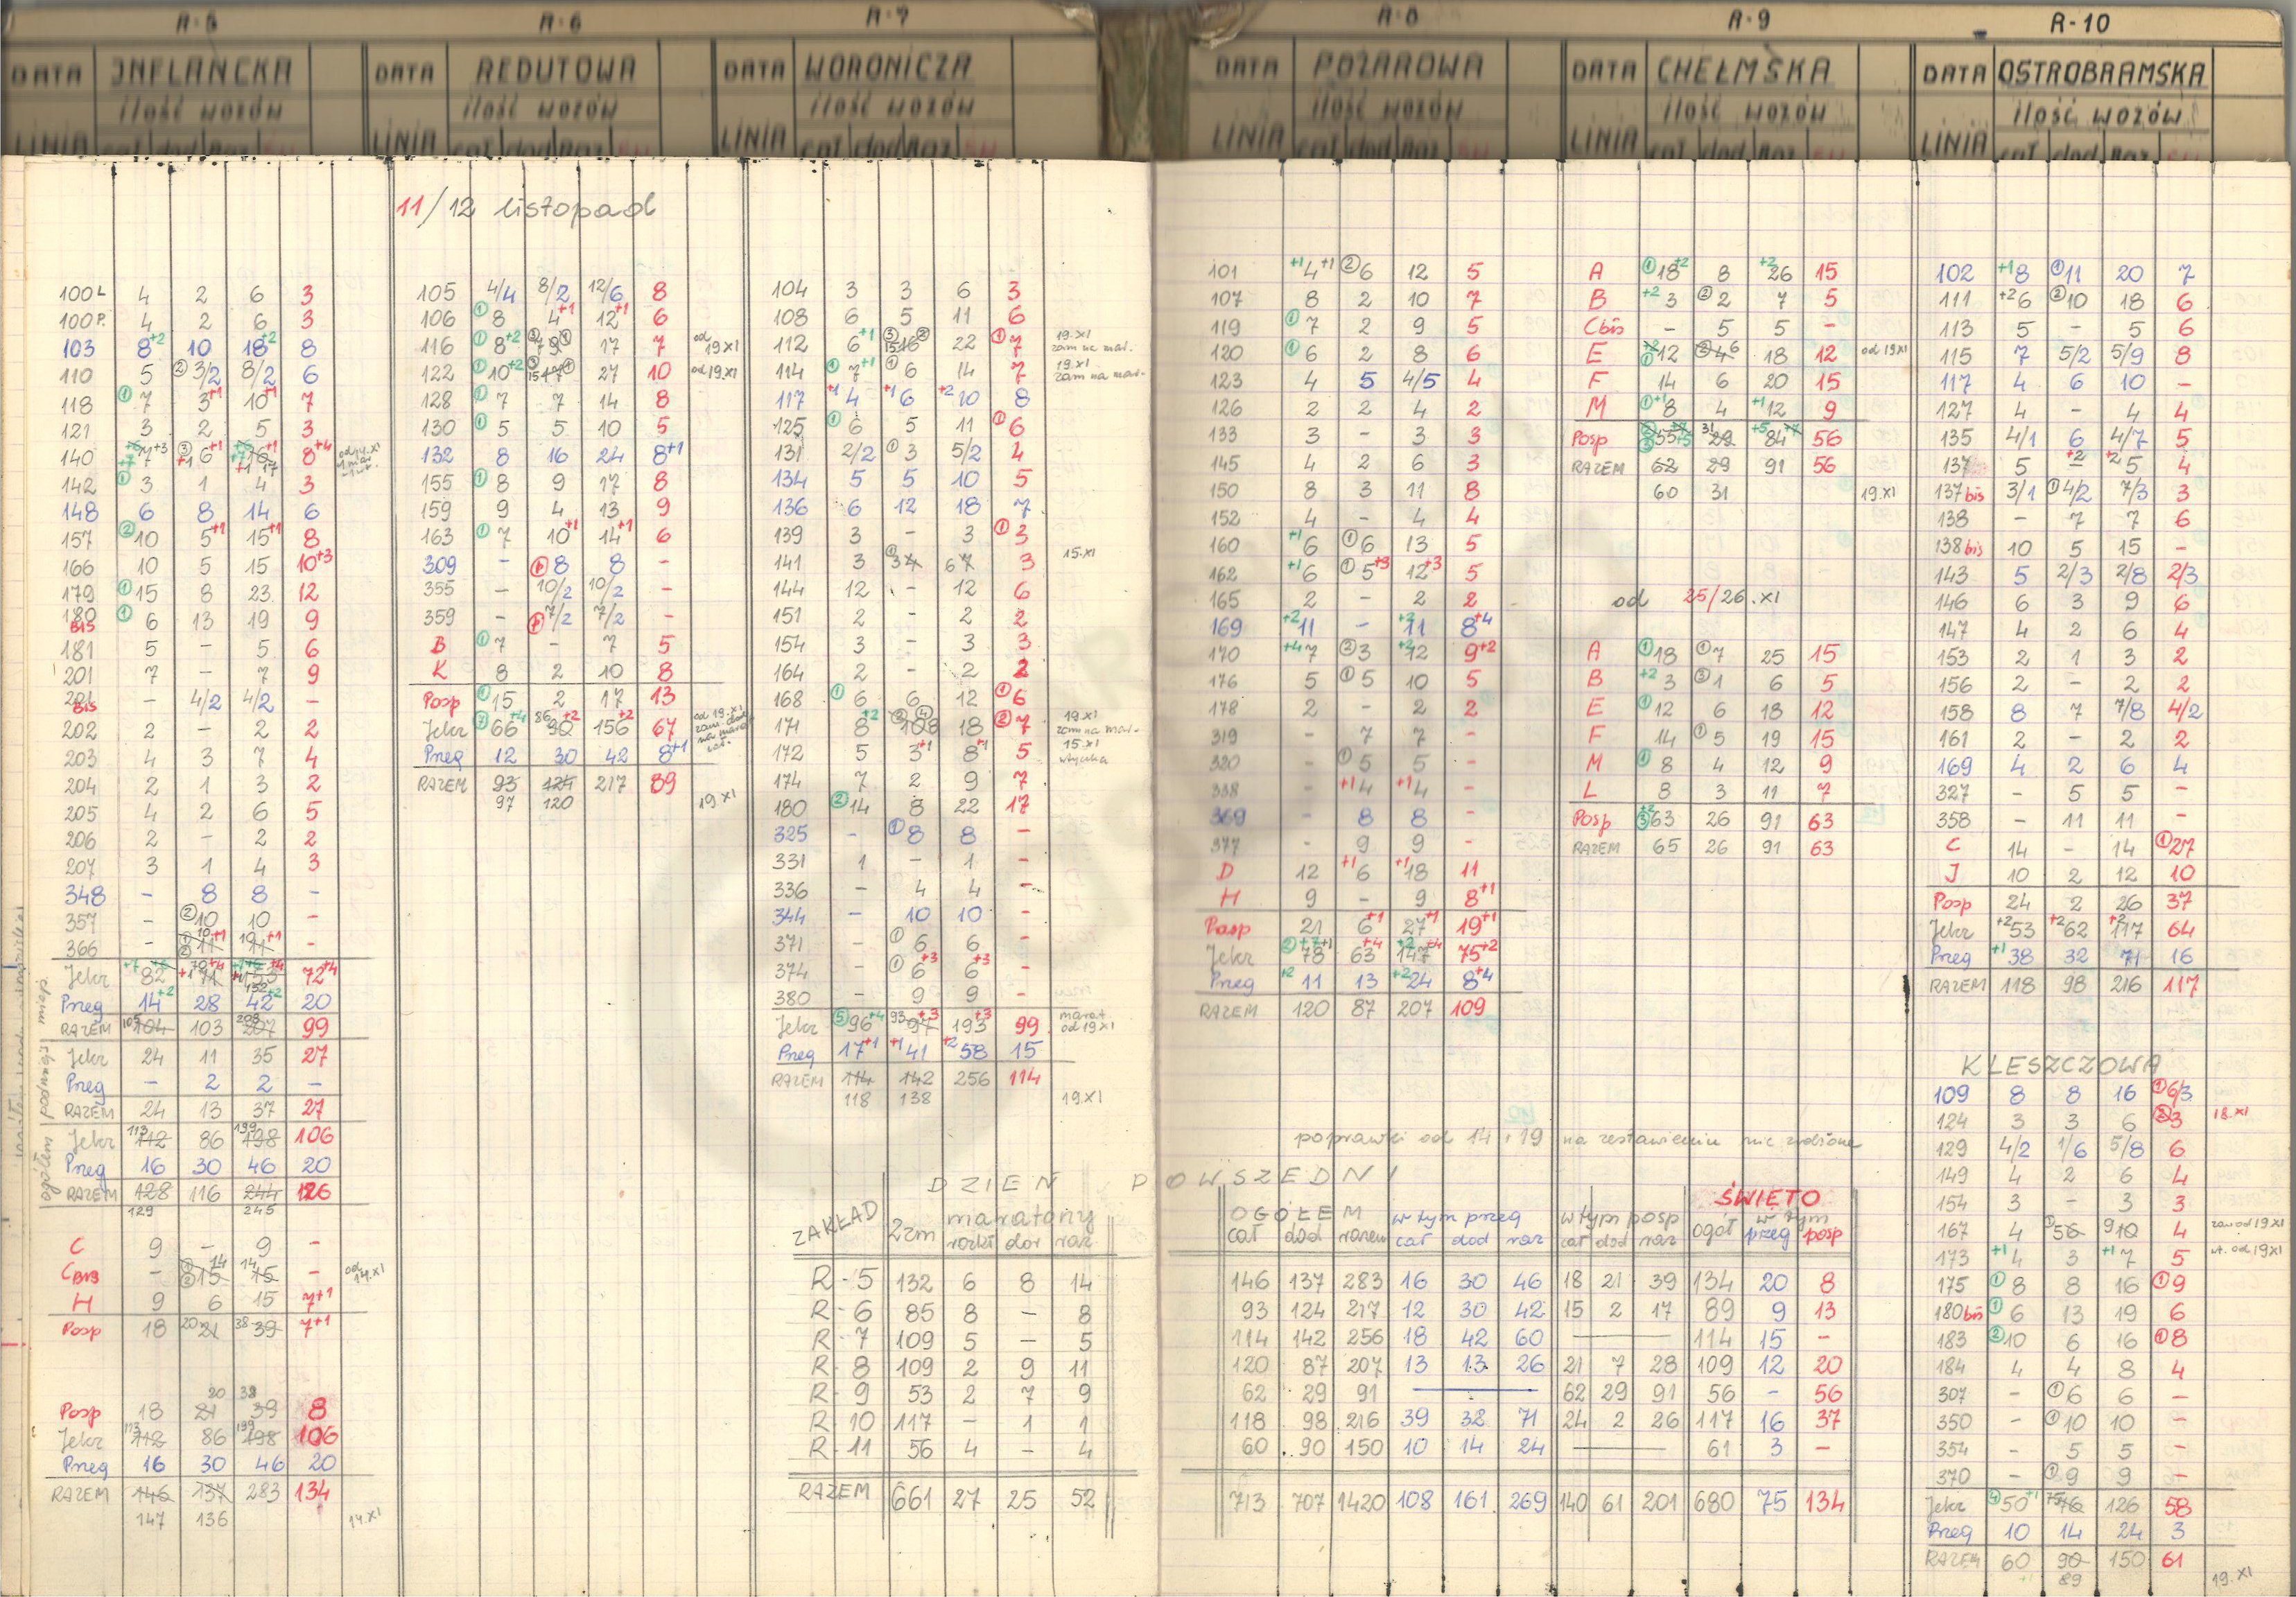 R-5 R-6 R-7 R-8 R-9 R-10
DATA INFLANCKA DATA REDUTOWA DATA WORONICZA DATA POŻAROWA DATA CHEŁMSKA DATA OSTROBRAMSKA
ilość wozów ilość wozów ilość wozów ilość wozów ilość wozów ilość wozów
LINIA cał dod Raz LINIA cał dod Raz LINIA cał dod Raz LINIA cał dod Raz LINIA cał dod Raz LINIA cał dod Raz
100L 4 2 6 3
100P. 4 2 6 3
103 8+2 10 18+2 8
110 5 ②3/2 8/2 6
118 ①7 3+1 10+1 7
121 3 2 5 3
140 8+4
142 ①3 1 4 3
148 6 8 14 6
157 ②10 5+1 15+1 8
166 10 5 15 10+3
179 ①15 8 23 12
180 BIS ①6 13 19 9
181 5 - 5 6
201 7 - 7 9
201 BIS - 4/2 4/2 -
202 2 - 2 2
203 4 3 7 4
204 2 1 3 2
205 4 2 6 5
206 2 - 2 2
207 3 1 4 3
348 - 8 8 -
357 - ②10 10 -
366 - 11 11 -
Jekr 82 72+4
Preg 14+2 28 42+2 20
RAZEM 105 104 103 208 207 99
Jekr 24 11 35 27
Preg - 2 2 -
RAZEM 24 13 37 27
Jekr 113 112 86 199 198 106
Preg 16 30 46 20
RAZEM 128 116 244 126
129 245
C 9 - 9 -
C BIS - 15 14 15 - od 14.XI
H 9 6 15 7+1
Posp 18 20 21 38 39 7+1
20 38
Posp 18 21 39 8
Jekr 113 112 86 199 198 106
Preg 16 30 46 20
RAZEM 146 137 283 134
147 136 14.XI
11/12 listopad
105 4/4 8/2 12/6 8
106 ①8 4+1 12+1 6
116 ①8+2 17 7 od 19XI
122 ①10+2 27 10 od 19.XI
128 ①7 7 14 8
130 ①5 5 10 5
132 8 16 24 8+1
155 ①8 9 17 8
159 9 4 13 9
163 ①7 10+1 14+1 6
309 - 8 8 -
355 - 10/2 10/2 -
359 - 7/2 7/2 -
B ①7 - 7 5
K 8 2 10 8
Posp ①15 2 17 13
Jekr ⑦66+4 86 90+2 156+2 67
Preg 12 30 42 8+1
RAZEM 93 124 217 89
97 120 19XI
104 3 3 6 3
108 6 5 11 6
112 6+1 16 22 ①7 19.XI zam na mar.
114 ①7+1 ①6 14 7 19.XI zam na mar.
117 +14 +16 +210 8
125 ①6 5 11 ①6
131 2/2 ①3 5/2 4
134 5 5 10 5
136 6 12 18 7
139 3 - 3 ①3
141 3 ①34 67 3 15.XI
144 12 - 12 6
151 2 - 2 2
154 3 - 3 3
164 2 - 2 2
168 ①6 6 12 ①6
171 8+2 18 ②7 19.XI zam na mar.
172 5 3+1 8+1 5 15.XI wtyczka
174 7 2 9 7
180 ②14 8 22 17
325 - ①8 8 -
331 1 - 1 -
336 - 4 4 -
344 - 10 10 -
371 - ①6 6 -
374 - ①6+3 6+3 -
380 - 9 9 -
Jekr ⑤96+4 93 97+3 193+3 99 marat. od 19XI
Preg 17+1 +141 +258 15
RAZEM 114 142 256 114
118 138 19XI
101 +14+1 ②6 12 5
107 8 2 10 7
119 ①7 2 9 5
120 ①6 2 8 6
123 4 5 4/5 4
126 2 2 4 2
133 3 - 3 3
145 4 2 6 3
150 8 3 11 8
152 4 - 4 4
160 +16 ①6 13 5
162 +16 ①5+3 12+3 5
165 2 - 2 2
169 +211 - +211 8+4
170 +47 ②3 +212 9+2
176 5 ①5 10 5
178 2 - 2 2
319 - 7 7 -
320 - ①5 5 -
338 - +14 +14 -
369 - 8 8 -
377 - 9 9 -
D 12 +16 +118 11
H 9 - 9 8+1
Posp 21 6+1 27+1 19+1
Jekr 78 63+4 147+4 75+2
Preg +211 13 +224 8+4
RAZEM 120 87 207 109
A ①18+2 8 +226 15
B +23 ②2 7 5
Cbis - 5 5 -
E 12 46 18 12 od 19XI
F 14 6 20 15
M ①+18 4 +112 9
Posp 55 31 29 84 56
RAZEM 62 29 91 56
60 31 19.XI
od 25/26.XI
A ①18 ①7 25 15
B +23 ③1 6 5
E ①12 6 18 12
F 14 ①5 19 15
M ①8 4 12 9
L 8 3 11 7
Posp +2③63 26 91 63
RAZEM 65 26 91 63
102 +18 ①11 20 7
111 +26 ②10 18 6
113 5 - 5 6
115 7 5/2 5/9 8
117 4 6 10 -
127 4 - 4 4
135 4/1 6 4/7 5
137 5 +2- +25 4
137bis 3/1 ①4/2 7/3 3
138 - 7 7 6
138bis 10 5 15 -
143 5 2/3 2/8 2/3
146 6 3 9 6
147 4 2 6 4
153 2 1 3 2
156 2 - 2 2
158 8 7 7/8 4/2
161 2 - 2 2
169 4 2 6 4
327 - 5 5 -
358 - 11 11 -
C 14 - 14 ①27
J 10 2 12 10
Posp 24 2 26 37
Jekr +253 +262 +2117 64
Preg +138 32 71 16
RAZEM 118 98 216 117
KLESZCZOWA
109 8 8 16 ①6/3
124 3 3 6 ②3 18.XI
129 4/2 1/6 5/8 6
149 4 2 6 4
154 3 - 3 3
167 4 ①56 910 4 zam od 19XI
173 +14 3 +17 5 wt. od 19XI
175 ①8 8 16 ①9
180bis ①6 13 19 6
183 ②10 6 16 ①8
184 4 4 8 4
307 - ①6 6 -
350 - ①10 10 -
354 - 5 5 -
370 - ①9 9 -
Jekr ④50+1 75 76 126 58
Preg 10 14 24 3
RAZEM 60 90 150 61
+1 89 19.XI
poprawki od 14 i 19 na zestawieniu nie zrobione
DZIEŃ POWSZEDNI
ZAKŁAD 2zm maratony OGÓŁEM w tym preg w tym posp ŚWIĘTO
rozkł dor raz cał dod razem cał dod raz cał dod raz ogół w tym preg posp
R-5 132 6 8 14 146 137 283 16 30 46 18 21 39 134 20 8
R-6 85 8 - 8 93 124 217 12 30 42 15 2 17 89 9 13
R-7 109 5 - 5 114 142 256 18 42 60 — 114 15 -
R-8 109 2 9 11 120 87 207 13 13 26 21 7 28 109 12 20
R-9 53 2 7 9 62 29 91 — 62 29 91 56 - 56
R-10 117 - 1 1 118 98 216 39 32 71 24 2 26 117 16 37
R-11 56 4 - 4 60 90 150 10 14 24 — 61 3 -
RAZEM 661 27 25 52 713 707 1420 108 161 269 140 61 201 680 75 134